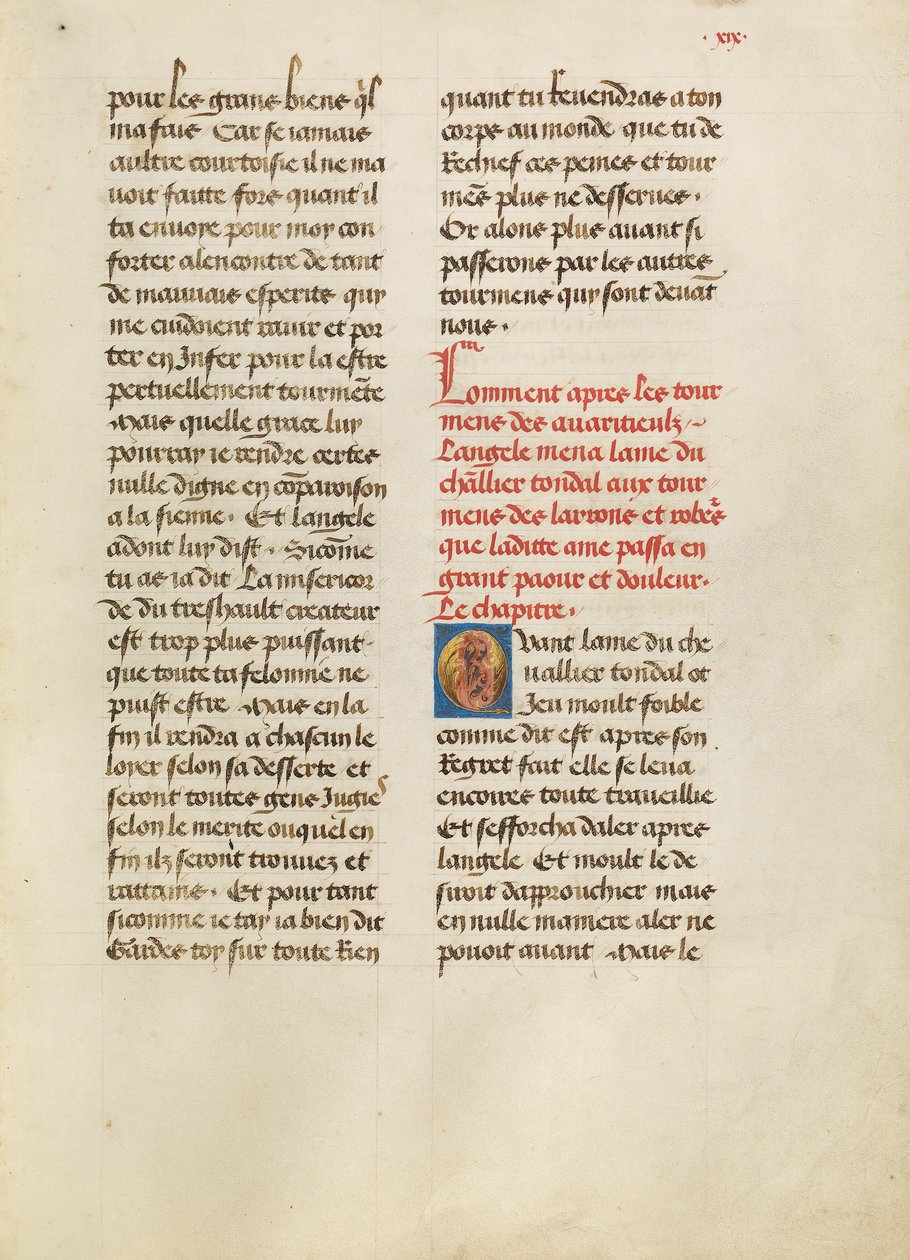 xix
pour les grans biens q̃l
ma fais Car se iamais
aultre courtoisie il ne ma
voit faitte fors quant il
ta enuoye pour moy con
forter alencontre de tant
de mauuais esperits quy
me cuidoient rauir et por
ter en Infer pour la estre
pertuellement tourmẽte
Mais quelle grace luy
pourray ie rendre certes
nulle digne en cõparoison
a la sienne. Et langele
adont luy dist. Sicõme
tu as ia dit La misericor
de du treshault createur
est trop plus puissant
que toute ta felonnie ne
puist estre Mais en la
fin il rendra a chascun le
loyer selon sa desserte et
seront toutes gens Jugies
selon le merite ouquel en
fin ilz seront trouuez et
rattains. Et pour tant
sicomme ie tay ia bien dit
Gardes toy sur toute Rien
quant tu Reuendras a ton
corps au monde que tu de
Rechief ces peines et tour
mẽs plus ne desserues.
Or alons plus auant si
passerons par les autres
tourmens quy sont deuãt
nous.
Comment apres les tour
mens des auaricieulz
Langele mena lame du
chl̃lier tondal aux tour
mens des larrons et robe͛s
que laditte ame passa en
grant paour et douleur.
Le chapitre.
Quant lame du che
uallier tondal ot
Jeu moult foible
comme dit est apres son
Regret fait elle se leua
encores toute traueillie
Et sefforcha daler apres
langele Et moult le de
siroit dapprouchier mais
en nulle maniere aler ne
pouoit auant Mais le